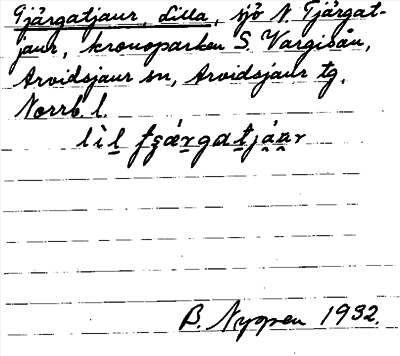 Tjärgatjaur, Lilla, sjö N. Tjärgat-
jaur, kronoparken S. Vargisån,
Arvidsjaur sn, Arvidsjaur tg.
Norrb. l.
B. Nyppen 1932.